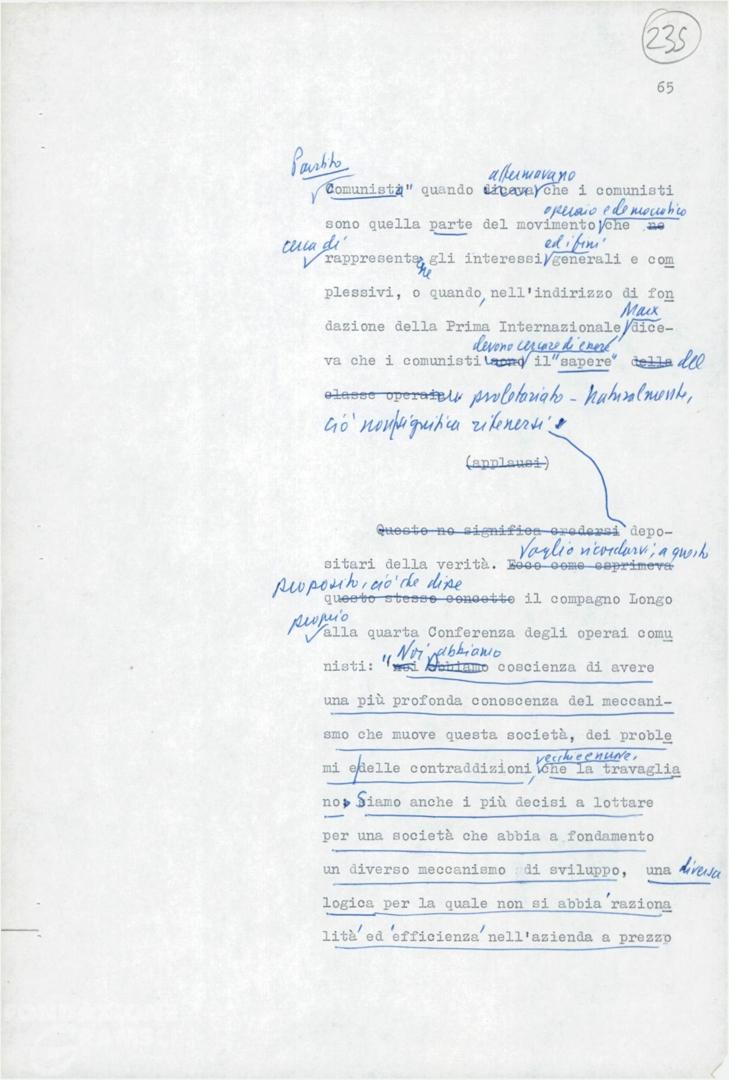 235
65
Partito
affermavano
Comunista" quando diceva che i comunisti
operaio e democratico
sono quella parte del movimento che ne
cerca di ed i fini
rappresenta re gli interessi generali e com
plessivi, o quando, nell'indirizzo di fon
Marx
dazione della Prima Internazionale dice-
devono cercare di essere
va che i comunisti sono il "sapere" della del
classe operaia" proletariato - Naturalmente,
ciò non significa ritenersi
(applausi)
Questo no significa credersi depo-
Voglio ricordarvi, a questo
sitari della verità. Ecco come esprimeva
proposito, ciò che disse
questo stesso concetto il compagno Longo
proprio
alla quarta Conferenza degli operai comu
Noi abbiamo
nisti: "noi abbiamo coscienza di avere
una più profonda conoscenza del meccani-
smo che muove questa società, dei proble
vecchie e nuove,
mi e delle contraddizioni, che la travaglia
no. Siamo anche i più decisi a lottare
per una società che abbia a fondamento
un diverso meccanismo di sviluppo, una diversa
logica per la quale non si abbia 'raziona
lità' ed 'efficienza' nell'azienda a prezzo
FONDAZIONE